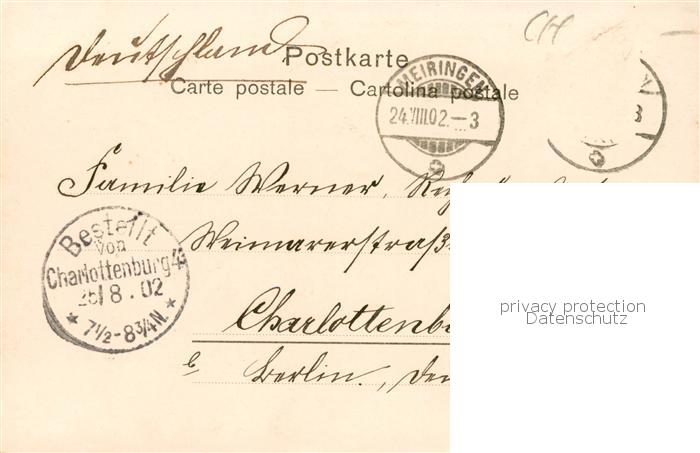 CH
Deutschland
Postkarte
Carte postale — Cartolina postale
MEIRINGEN
24.VIII.02.—3
3
Familie Werner,
Weimarerstraß
Bestellt
von
Charlottenburg
25/8.02
7½-8¾N.
Charlottenb
b Berlin.
privacy protection
Datenschutz